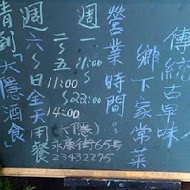 傳統古早味
鄉下家常菜
營業時間：
週一
二~五
11:00
~14:00
週六~日全天用餐
請到「大隱酒食」
(大隱)
永康街65號
23432275